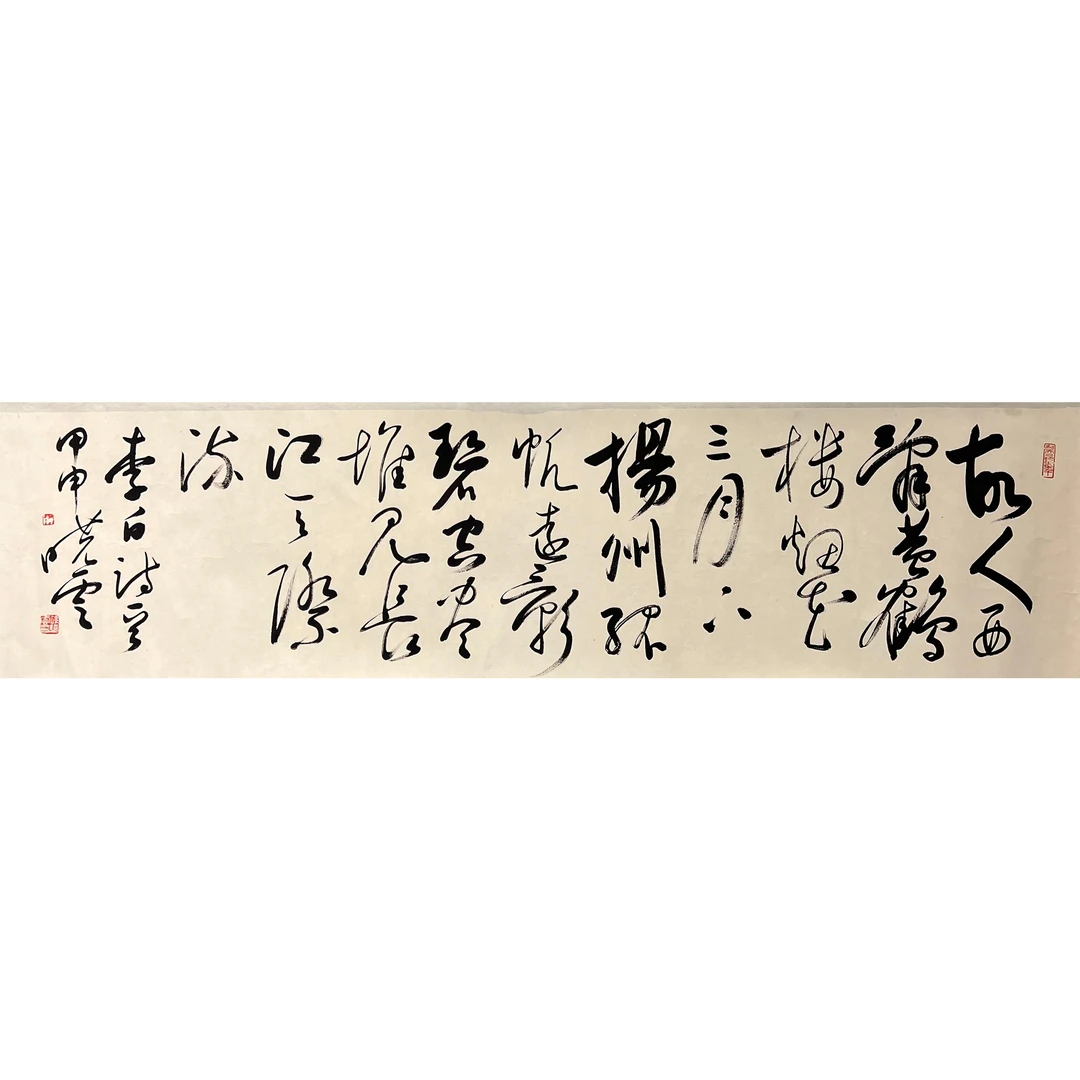 故人西
辭黃鶴
樓烟花
三月下
揚州孤
帆遠影
碧空盡
惟見長
江天際
流
李白詩句
甲申曉雲